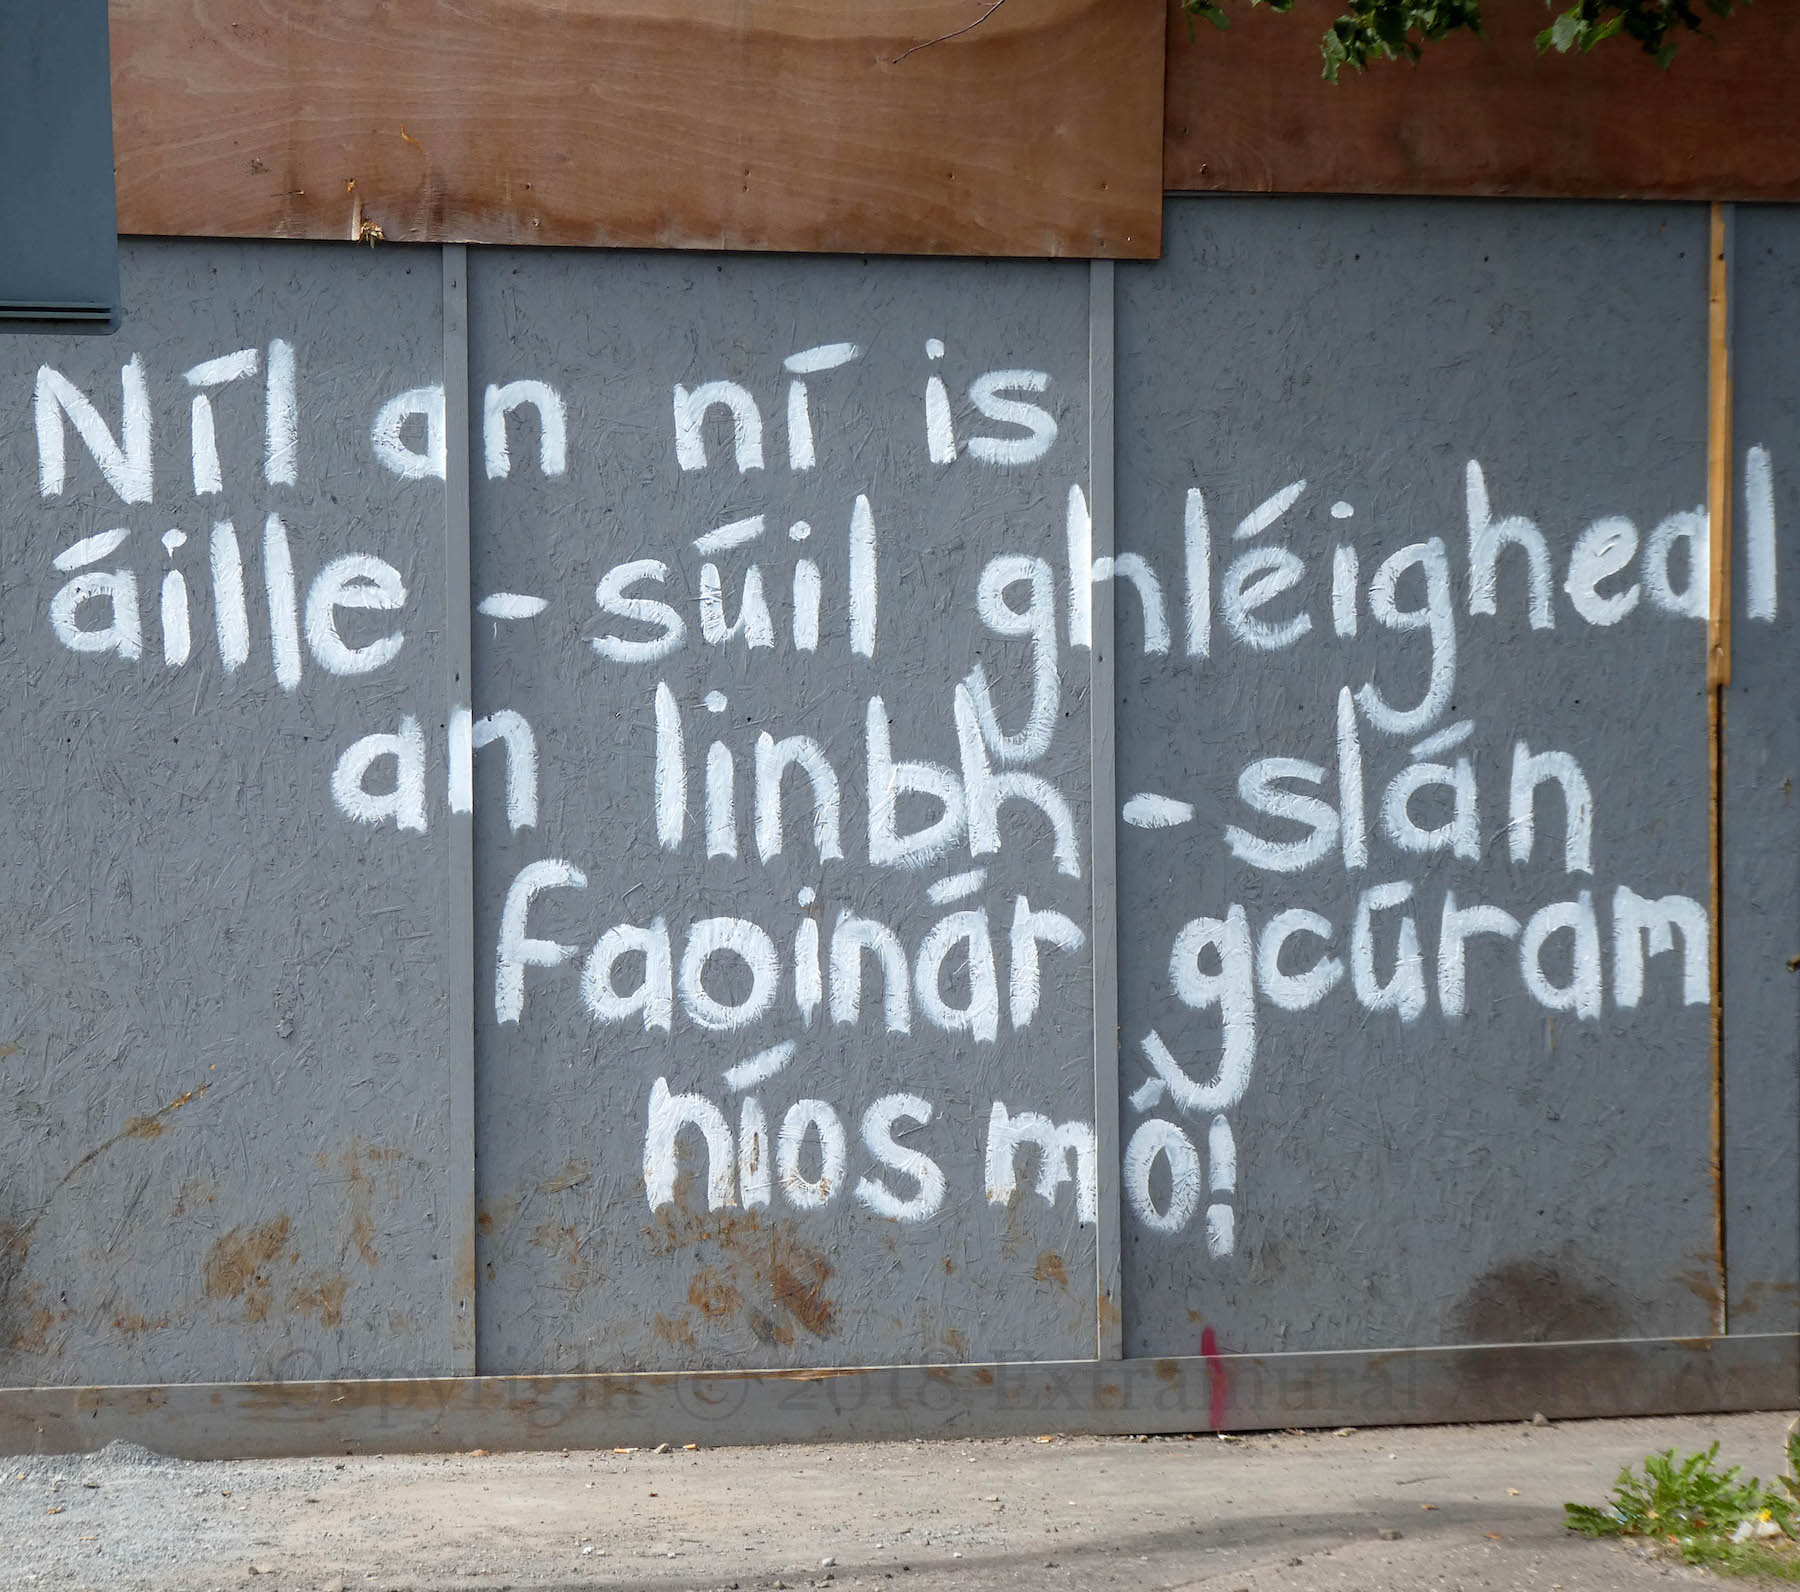 Níl an ní is
áille - súil ghléigheal
an linbh - slán
faoinár gcúram
níos mó!
Copyright © 2018 Extramural Activity